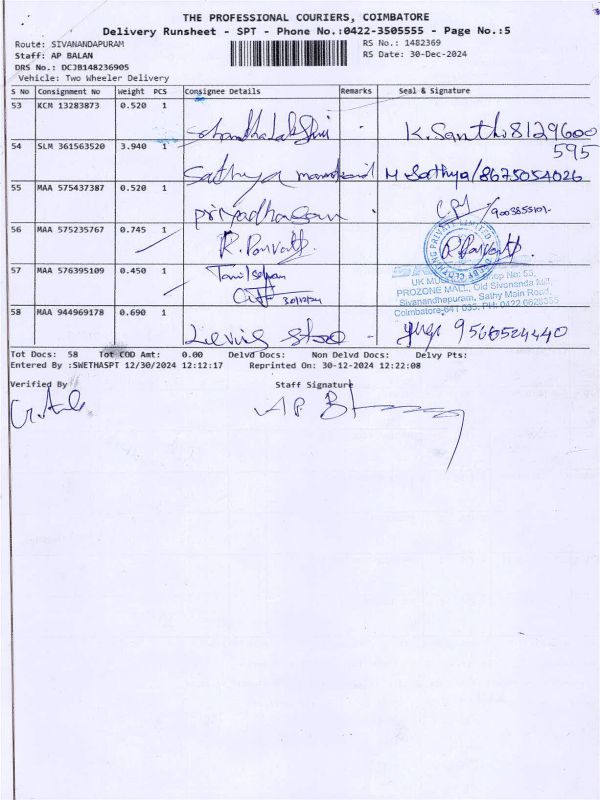 THE PROFESSIONAL COURIERS, COIMBATORE
Delivery Runsheet - SPT - Phone No.:0422-3505555 - Page No.:5
Route: SIVANANDAPURAM
RS No.: 1482369
Staff: AP BALAN
RS Date: 30-Dec-2024
DRS No.: DC3B148236905
Vehicle: Two Wheeler Delivery
S No Consignment No Weight PCS Consignee Details Remarks Seal & Signature
53 KCM 13283873 0.520 1
K. Santhi 8129600
595
54 SLM 361563520 3.940 1
Sathya M Sathya/8675054026
55 MAA 575437387 0.520 1
priyadharsan
56 MAA 575235767 0.745 1
R. Parvathi R. Parvathi
57 MAA 576395109 0.450 1
Tamilselvan
30/12/24
UK
PROZONE MALL, Old Sivananda Mill,
Sivanandhapuram, Sathy Main Road,
Coimbatore-641 035. PH: 0422 6626555
58 MAA 944969178 0.690 1
Levis Store 9566524440
Tot Docs: 58 Tot COD Amt: 0.00 Delvd Docs: Non Delvd Docs: Delvy Pts:
Entered By :SWETHASPT 12/30/2024 12:12:17 Reprinted On: 30-12-2024 12:22:08
Verified By Staff Signature
AP B